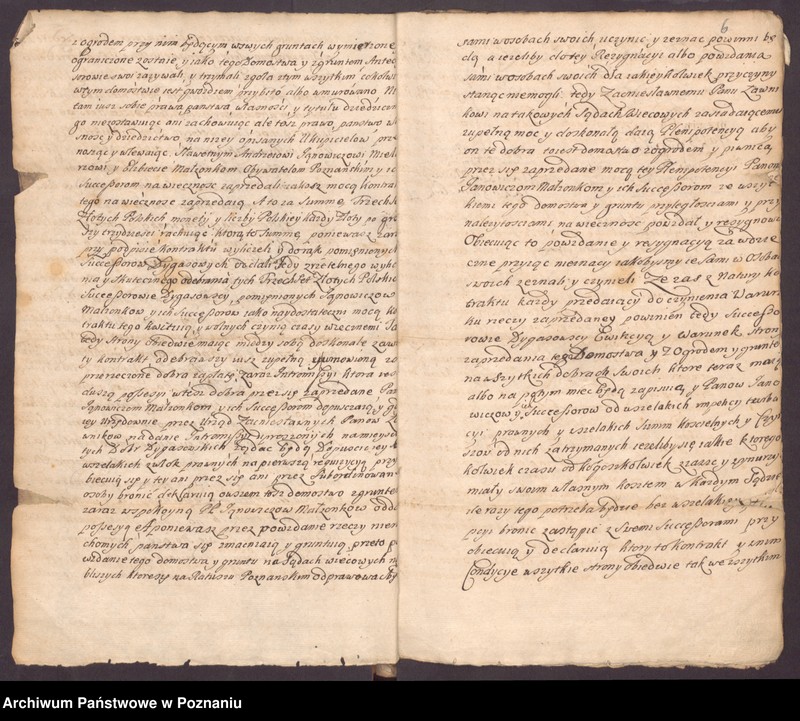 z ogrodem przy nim będącym w swych gruntach wymierzone
ograniczone zostaie y iako tego Domostwa y z gruntem Antec
sorowie swoi zażywali, y trzymali zgoła z tym wszytkim cokolw
w tym domostwie iest gwozdziem przybito albo wmurowano
tam iusz sobie prawa panstwa własnosci y tytułu dziedziczn
go niezostawuiąc ani zachowuiąc ale tosz prawo panstwo
snosc y dziedzictwo, na nizey opisanych Ukupicielow prze
nosząc y wlewaiąc, Sławetnym Andrzeiowi Janowiczowi
rzowi y Elzbiecie Małzonkom Obywatelom Poznanskim y
Successorom na wiecznosc zaprzedali iakosz mocą kontra
tego na wiecznosc zaprzedaią. A to za Summę Trzech
Złotych Polskich monety y liczby Polskiey kazdy Złoty po gro
szy trzydziesci rachuiąc ktorą to Summę poniewasz zar
przy podpisie kontraktu wyliczeli y do rąk pomienionych
Successorow Dygasowych oddali Tedy z rzetelnego wyli
nia y skutecznego odebrania tych Trzechset Złotych Polski
Successorowie Dygasowscy pomienionych Janowiczow
Małzonkow y ich Successorow iako naydostateczni mocą ko
traktu tego kwituią y wolnych czynią czasy wiecznemi
tedy Strony obiedwie maiąc miedzy sobą doskonale zaw
ty kontrakt odebrawszy iusz zupełną umowioną za
przerzeczone dobra zapłatę zaraz Intromissyi ktora
duszą possesyi w tesz dobra przez się zaprzedane Pan
Janowiczom Małzonkom y ich Successorom dopuszczaią y
tey Urzędownie przez Urząd Zacnie Sławnych Panow Ła
wnikow na danie Intromissyi uproszonych na mieysc
tych Dobr Dygasowskich zydac będą Dopuscic iey
wszelakich zwłok prawnych na pierwszą requizycyą przy
biecuią się y tey ani przez się ani przez Subordinowan
osoby bronic deklaruią owszem tosz domostwo z grunte
zaraz w spokoyną PP. Janowiczow Małzonkow odda
possesyą A poniewasz przez powzdanie rzeczy nieru
chomych panstwa się zmacniaią y gruntuią przeto po
wzdanie tego domostwa y gruntu na Sądach wiecowych
blizszych ktore się na Ratuszu Poznanskim odprawowac
6
sami w osobach swoich uczynic y zeznac powinni bę
dą a iezeliby do tey Rezygnacyi albo powzdania
sami w osobach swoich dla iakieykolwiek przyczyny
stanąc niemogli tedy Zacnie Sławnemu Panu Ławni
kowi na takowych Sądach Wiecowych zasiadaiącemu
zupełną moc y doskonałą daią Plenipotencyą aby
on te dobra to iest domostwo z ogrodem y piwnicą
przez się zaprzedane mocą tey Plenipotencyi Panom
Janowiczom Małzonkom y ich Successorom ze wszyt
kiemi tego domostwa y gruntu przyległosciami y przy
nalezytosciami na wiecznosc powzdał y resygnował
Obiecuiąc to powzdanie y resygnacyą za wdzie
czne przyiąc nienaczy iakobysmy ie Sami w Osobach
swoich zeznali y czynieli Ze zas z Natury ko
traktu kazdy przedaiący do czynienia Warun
ku rzeczy zaprzedaney powinien tedy Successo
rowie Dygasowscy Ewikcyą y Warunek Strony
zaprzedania tego Domostwa y z Ogrodem y gruntem
na wszytkich dobrach Swoich ktore teraz maią
albo napotym miec będą zapisuią y Panow Jano
wiczow y ich Successorow od wszelakich impeticy turba
cyi prawnych y wszelakich Summ koscielnych y Czyn
szow od nich zatrzymanych iezeliby się iakie ktorego
kolwiek czasu od kogoszkolwiek zrazic y wynurzyc
miały swoim własnym kosztem w kazdym Sądzie
ile razy tego potrzeba będzie bez wszelakiey
bronic zastąpic z Swemi Successorami przy
obiecuią y declaruią ktory to kontrakt y w nim
Condycye wszytkie strony obiedwie tak we wszytkim
Archiwum Państwowe w Poznaniu